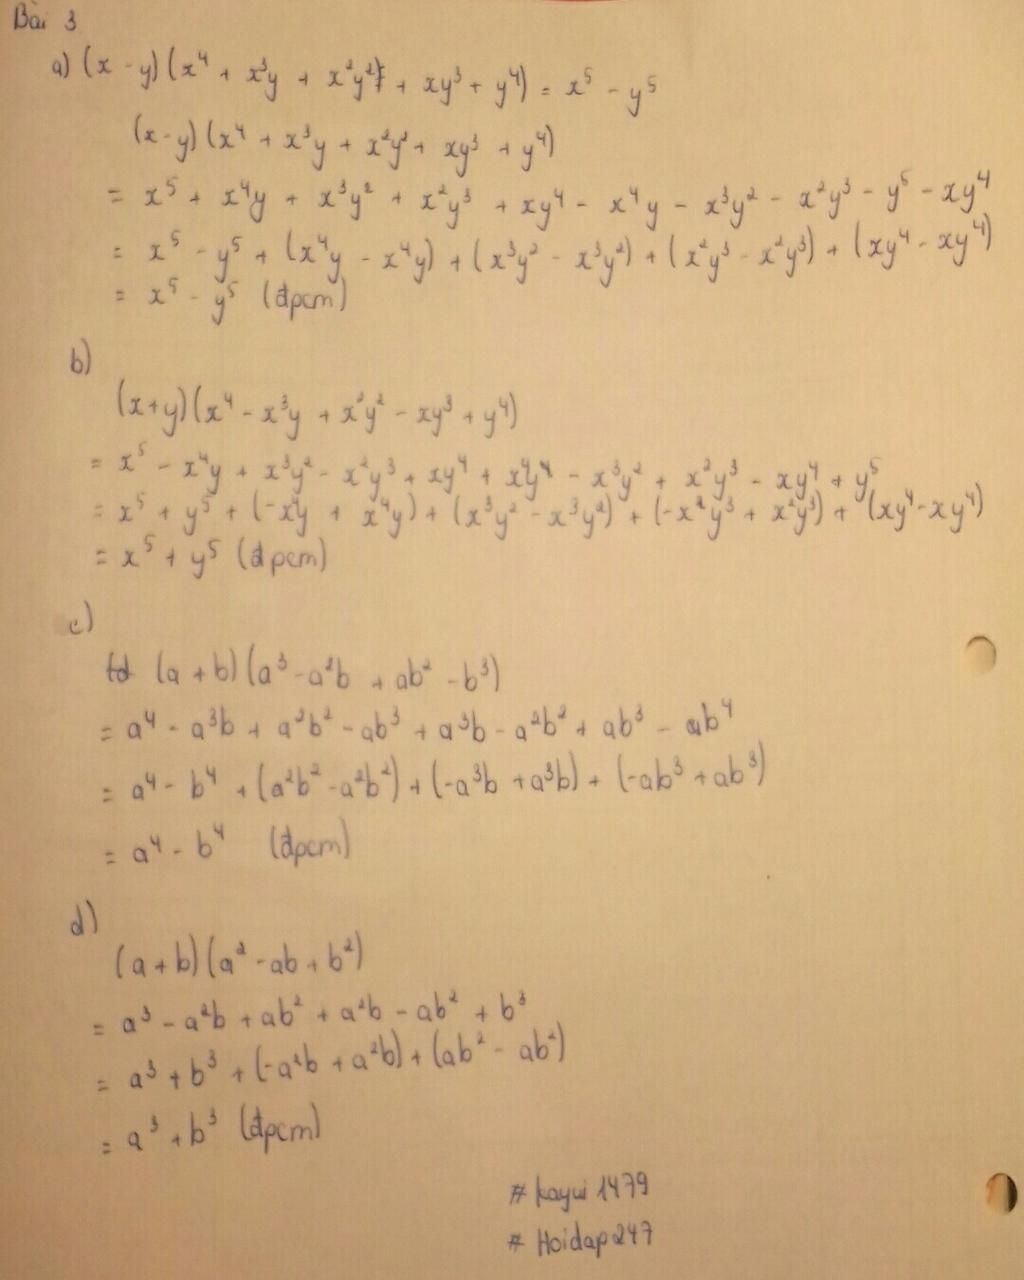 Bài 3
a) (x - y)(x⁴ + x³y + x²y² + xy³ + y⁴) = x⁵ - y⁵
(x - y)(x⁴ + x³y + x²y² + xy³ + y⁴)
= x⁵ + x⁴y + x³y² + x²y³ + xy⁴ - x⁴y - x³y² - x²y³ - y⁵ - xy⁴
= x⁵ - y⁵ + (x⁴y - x⁴y) + (x³y² - x³y²) + (x²y³ - x²y³) + (xy⁴ - xy⁴)
= x⁵ - y⁵ (đpcm)
b)
(x+y)(x⁴ - x³y + x²y² - xy³ + y⁴)
= x⁵ - x⁴y + x³y² - x²y³ + xy⁴ + x⁴y - x³y² + x²y³ - xy⁴ + y⁵
= x⁵ + y⁵ + (-x⁴y + x⁴y) + (x³y² - x³y²) + (-x²y³ + x²y³) + (xy⁴ - xy⁴)
= x⁵ + y⁵ (đpcm)
c)
(a + b)(a³ - a²b + ab² - b³)
= a⁴ - a³b + a²b² - ab³ + a³b - a²b² + ab³ - ab⁴
= a⁴ - b⁴ + (a²b² - a²b²) + (-a³b + a³b) + (-ab³ + ab³)
= a⁴ - b⁴ (đpcm)
d)
(a + b)(a² - ab + b²)
= a³ - a²b + ab² + a²b - ab² + b³
= a³ + b³ + (-a²b + a²b) + (ab² - ab²)
= a³ + b³ (đpcm)
# kayui 1479
# Hoidap247